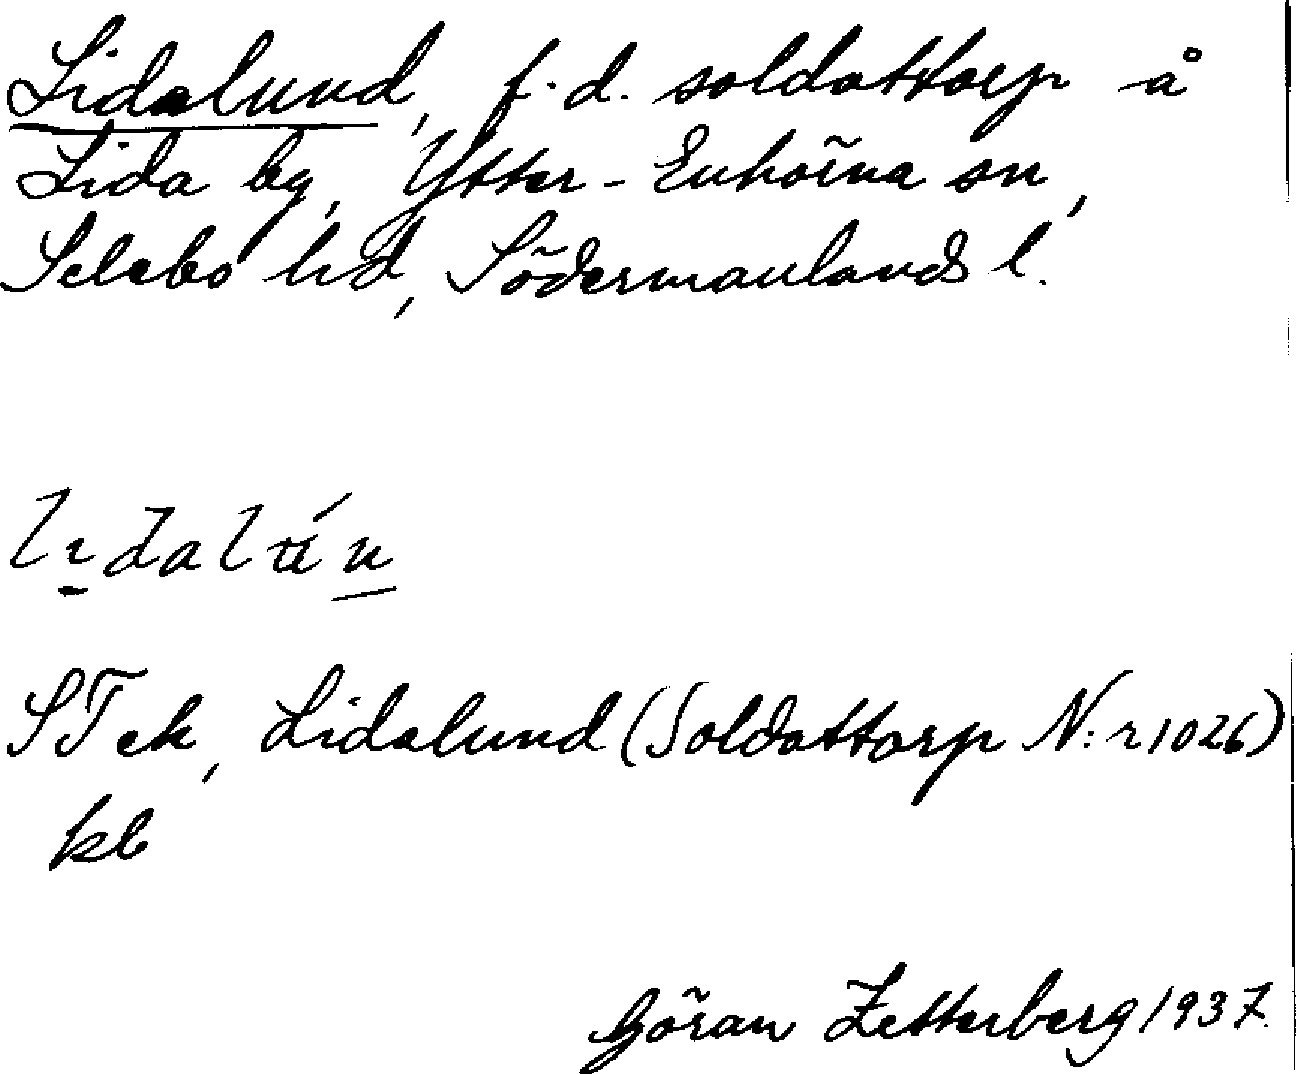 Lidalund, f.d. soldattorp å
Lida bg, Ytter-Enhörna sn,
Selebo hd, Södermanlands l.
STek, Lidalund (Soldattorp N:r 1026)
kb
Göran Zetterberg 1937.